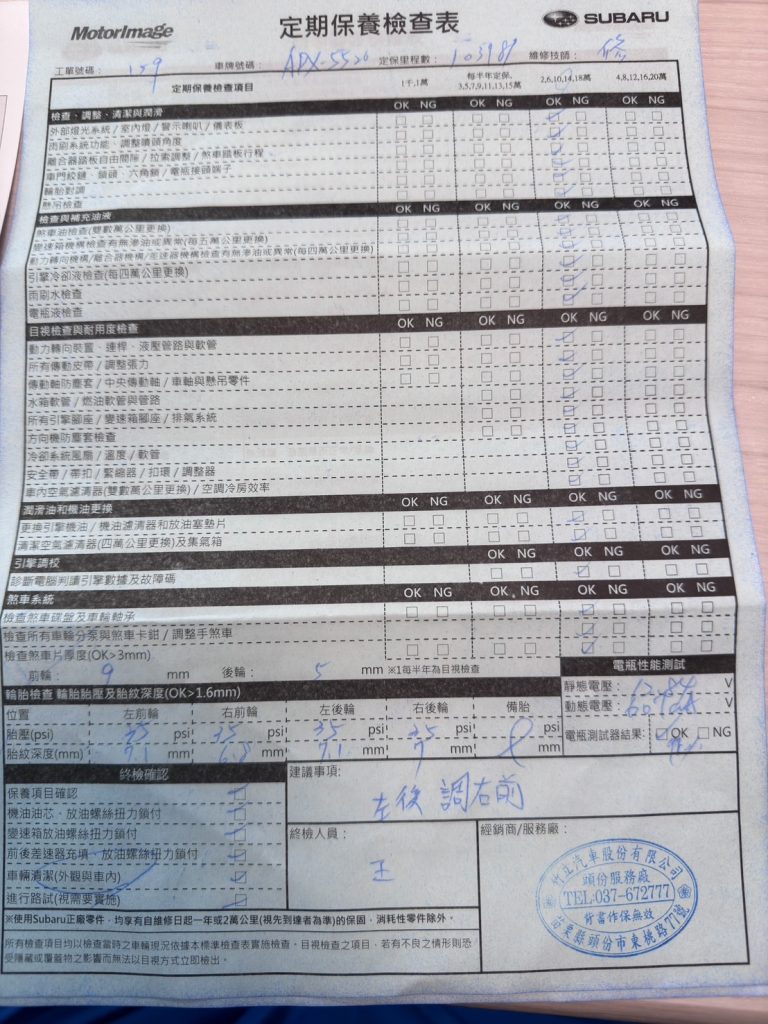 MotorImage
定期保養檢查表
SUBARU
工單號碼： 159 車牌號碼： 定保里程數： 103981 維修技師：
定期保養檢查項目 1千,1萬 每半年定保, 3,5,7,9,11,13,15萬 2,6,10,14,18萬 4,8,12,16,20萬
檢查、調整、清潔與潤滑 OK NG OK NG OK NG OK NG
外部燈光系統/室內燈/警示喇叭/儀表板
雨刷系統功能、調整噴頭角度
離合器踏板自由間隙/拉索調整/煞車踏板行程
車門鉸鏈、鎖頭、六角鎖/電瓶接頭端子
輪胎對調
懸吊檢查
檢查與補充油液 OK NG OK NG OK NG OK NG
煞車油檢查(雙數萬公里更換)
變速箱機構檢查有無滲油或異常(每五萬公里更換)
動力轉向機構/離合器機構/差速器機構檢查有無滲油或異常(每四萬公里更換)
引擎冷卻液檢查(每四萬公里更換)
雨刷水檢查
電瓶液檢查
目視檢查與耐用度檢查 OK NG OK NG OK NG OK NG
動力轉向裝置、連桿、液壓管路與軟管
所有傳動皮帶/調整張力
傳動軸防塵套/中央傳動軸/車軸與懸吊零件
水箱軟管/燃油軟管與管路
所有引擎腳座/變速箱腳座/排氣系統
方向機防塵套檢查
冷卻系統風扇/溫度/軟管
安全帶/帶扣/緊縮器/扣環/調整器
車內空氣濾清器(雙數萬公里更換)/空調冷房效率
潤滑油和機油更換 OK NG OK NG OK NG OK NG
更換引擎機油/機油濾清器和放油塞墊片
清潔空氣濾清器(四萬公里更換)及集氣箱
引擎調校 OK NG OK NG OK NG
診斷電腦判讀引擎數據及故障碼
煞車系統 OK NG OK NG OK NG OK NG
檢查煞車碟盤及車輪軸承
檢查所有車輪分泵與煞車卡鉗/調整手煞車
檢查煞車片厚度(OK>3mm)
前輪： 9 mm 後輪： 5 mm ※1每半年為目視檢查
電瓶性能測試
靜態電壓： V
動態電壓： V
電瓶測試器結果: OK NG
輪胎檢查 輪胎胎壓及胎紋深度(OK>1.6mm)
位置 左前輪 右前輪 左後輪 右後輪 備胎
胎壓(psi) 35 psi 35 psi 35 psi 35 psi psi
胎紋深度(mm) 7.1 mm 6.8 mm 7.1 mm 7 mm mm
終檢確認
保養項目確認
機油油芯、放油螺絲扭力鎖付
變速箱放油螺絲扭力鎖付
前後差速器充填、放油螺絲扭力鎖付
車輛清潔(外觀與車內)
進行路試(視需要實施)
建議事項:
左後 調右前
終檢人員：
王
經銷商/服務廠：
竹立汽車股份有限公司
頭份服務廠
TEL:037-672777
作保無效
苗栗縣頭份市東桃路77號
※使用Subaru正廠零件，均享有自維修日起一年或2萬公里(視先到達者為準)的保固，消耗性零件除外。
所有檢查項目均以檢查當時之車輛現況依據本標準檢查表實施檢查，目視檢查之項目，若有不良之情形則恐
受隱藏或覆蓋物之影響而無法以目視方式立即檢出。